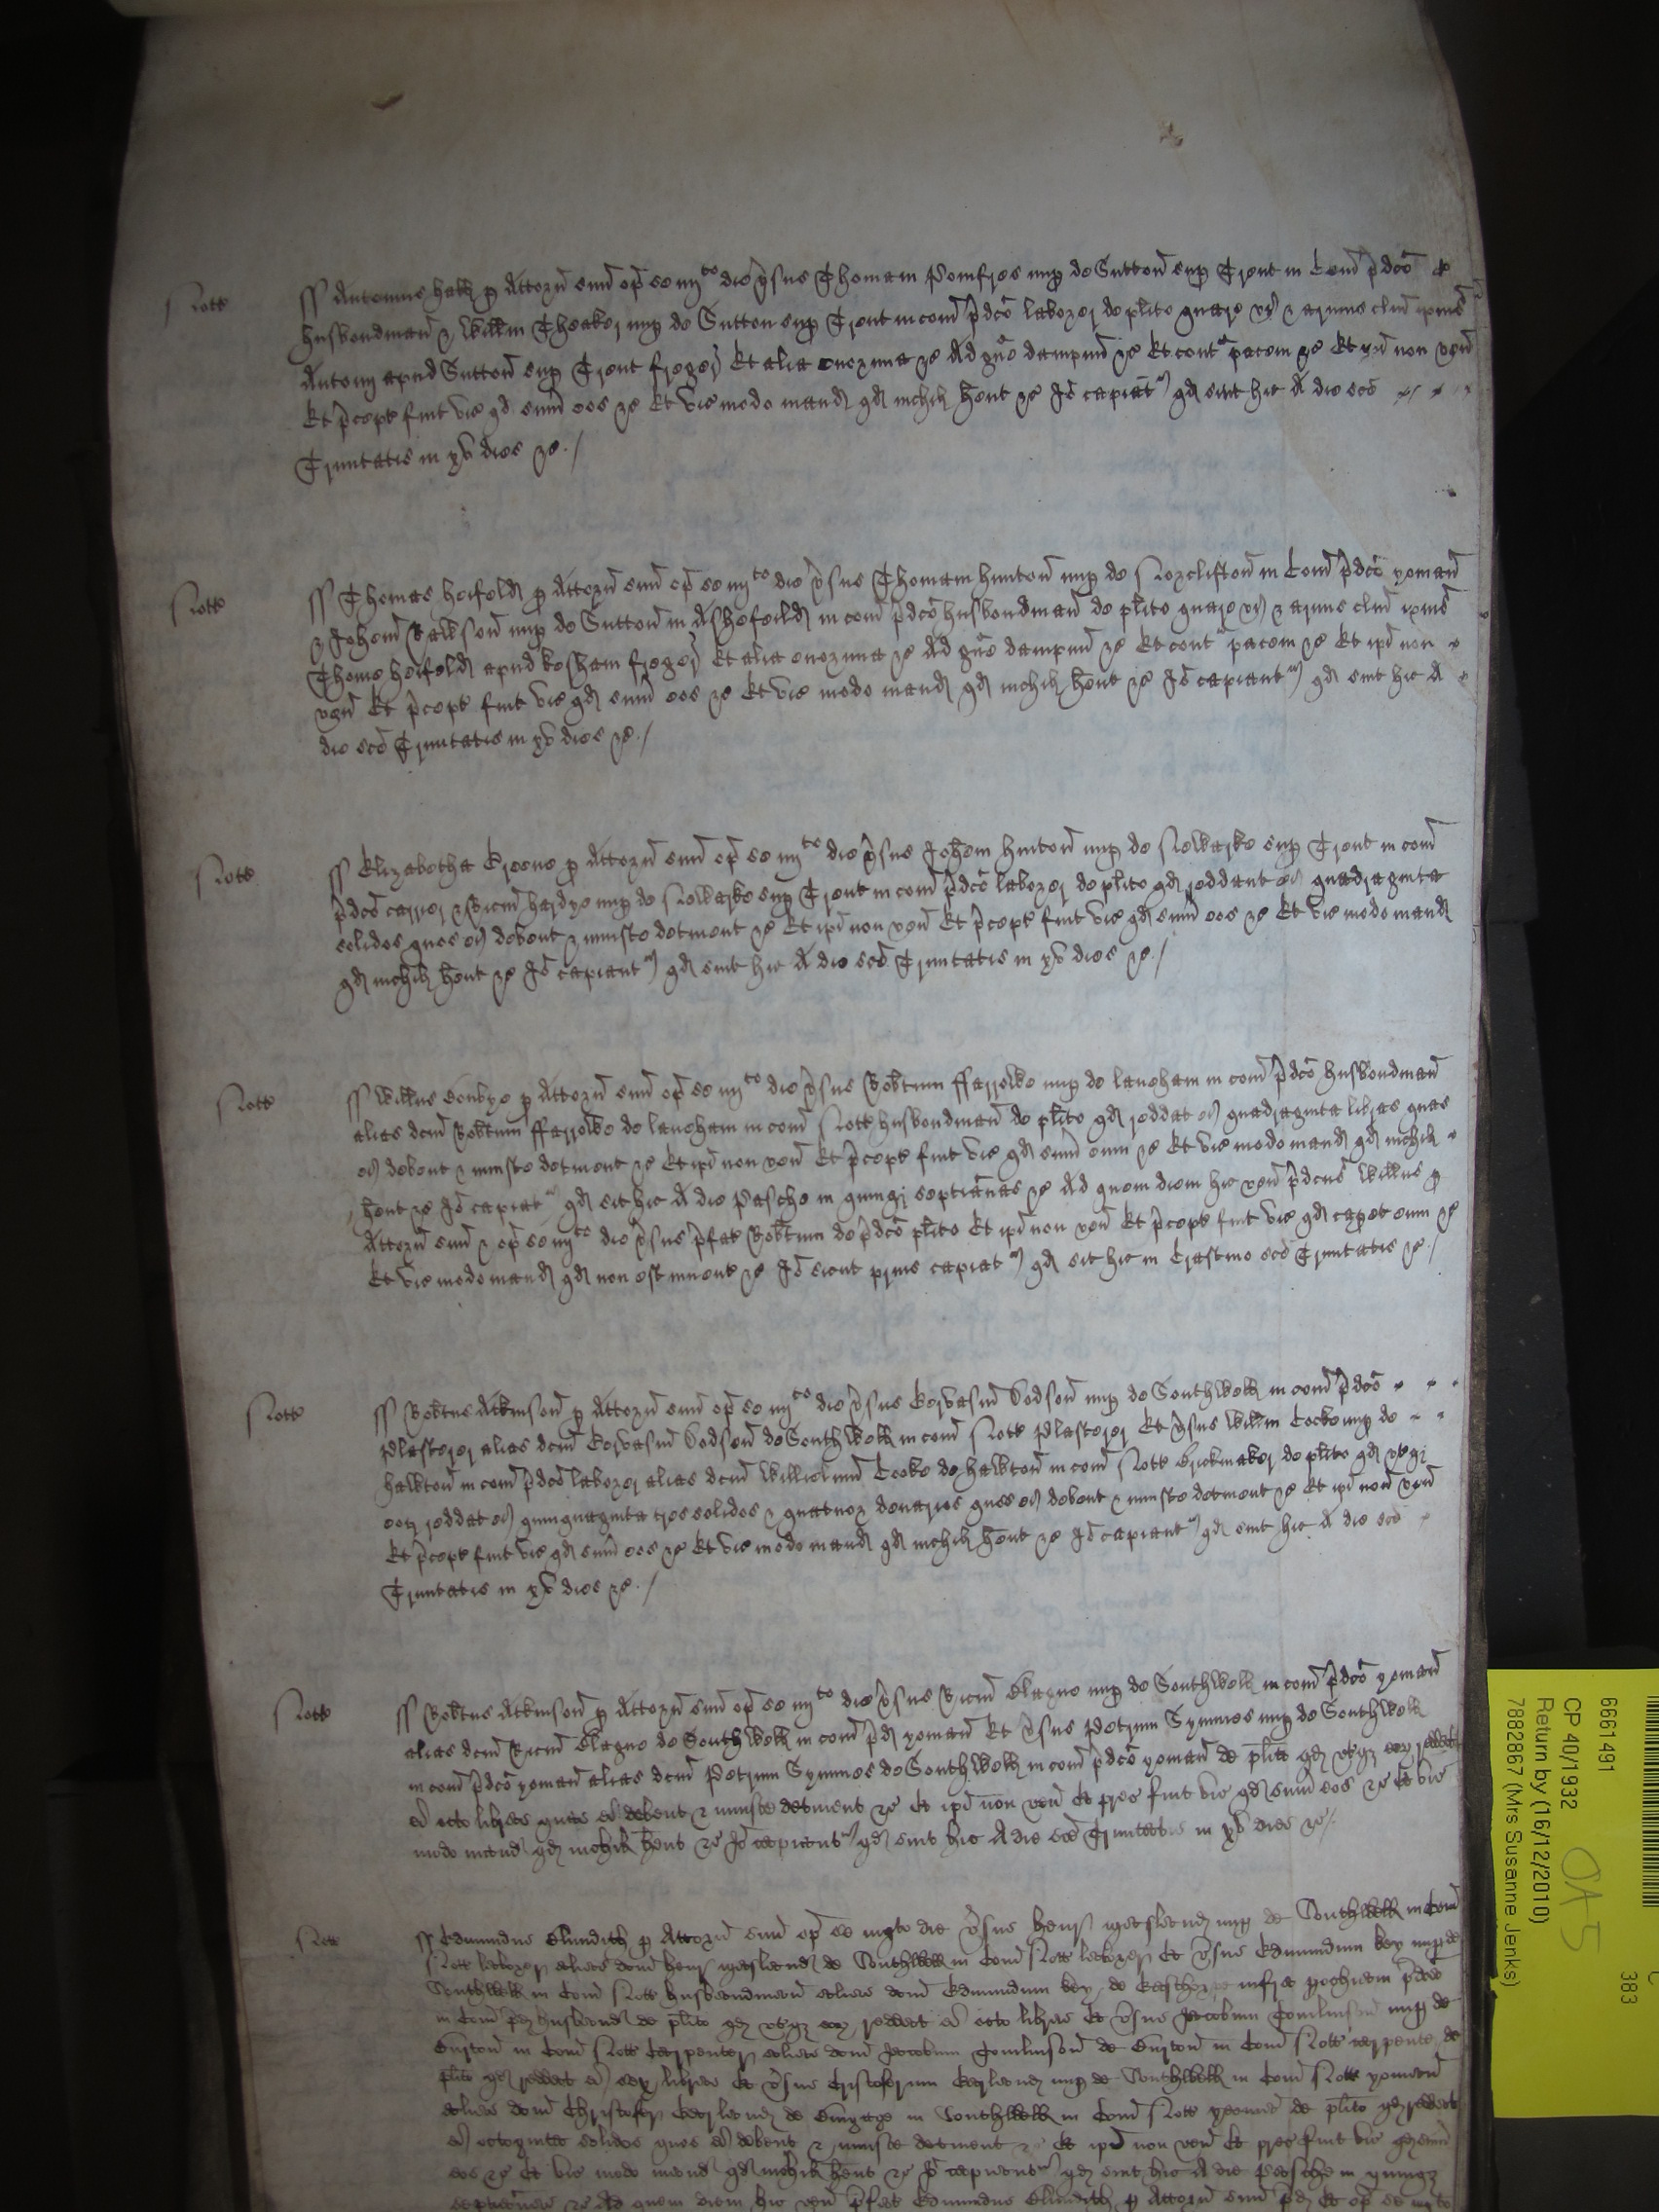 Nott
ss Antonius Hall p Attorn suu op se iiijto die vsus Thomam Pomfres nup de Sutton sup Trent in Com pdco
husbondman & Willm Theaker nup de Sutton sup Trent in com pdco laborer de plito quare vi & armis clm ipius
Antonij apud Sutton sup Trent freger Et alia enormia &c Ad gue dampnu &c Et contra pacem &c Et ipi non ven
Et pcept fuit vic qd sum eos &c Et vic modo mand qd nichil hent &c Io capiat qd sint hic A die sce
Trinitatis in xv dies &c
Nott
ss Thomas Heifeld p Attorn suu op se iiijto die vsus Thomam Hunton nup de Norclifton in Com pdco yoman
& Johem Rawson nup de Sutton in Ashefeild in com pdco husbondman de plito quare vi & armis clm ipius
Thome Heifeld apud Cosham freger Et alia enormia &c Ad gue dampnu &c Et contra pacem &c Et ipi non
ven Et pcept fuit vic qd sum eos &c Et vic modo mand qd nichil hent &c Io capiant qd sint hic A
die sce Trinitatis in xv dies &c
Nott
ss Elizabetha Greene p Attorn suu op se iiijto die vsus Johem Huiton nup de Newarke sup Trent in com
pdco carrer & Ricm Hardye nup de Newarke sup Trent in com pdco laborer de plito qd reddant ei quadraginta
solidos quos ei debent & iniuste detinent &c Et ipi non ven Et pcept fuit vic qd sum eos &c Et vic modo mand
qd nichil hent &c Io capiant qd sint hic A die sce Trinitatis in xv dies &c
Nott
ss Willus p Attorn suu op se iiijto die vsus Robtum ffarrowe nup de laneham in com pdco husbondman
alias dcm Robtum ffarrowe de laneham in com Nott husbondman de plito qd reddat ei quadraginta libras quas
ei debent & iniuste detinent &c Et ipi non ven Et pcept fuit vic qd sum eum &c Et vic modo mand qd nichil
hent &c Io capiat qd sit hic A die Pasche in quinqz septianas &c Ad quem diem hic ven pdcus Willus p
Attorn suu & op se iiijto die vsus pfat Robtum de pdco plito Et ipi non ven Et pcept fuit vic qd capet eum &c
Et vic modo mand qd non est invent &c Io sicut prius capiat qd sit hic in Crastino sce Trinitatis &c
Nott
ss Robtus Atkinson p Attorn suu op se iiijto die vsus Gervasiu Dodson nup de Southwell in com pdco
Plasterer alias dcm Gervasiu Dodson de Southwell in com Nott Plasterer Et vsus Willm Cooke nup de
Hawton in com pdco laborer alias dcm Willielmu Cooke de Hawton in com Nott Brickmaker de plito qd utqz
eor reddat ei quinquaginta tres solidos & quatuor denarios quos ei debent & iniuste detinent &c Et ipi non ven
Et pcept fuit vic qd sum eos &c Et vic modo mand qd nichil hent &c Io capiant qd sint hic A die sce
Trinitatis in xv dies &c
Nott
ss Robtus Atkinson p Attorn suu op se iiijto die vsus Ricm Blagne nup de Southwell in com pdco yoman
alias dcm Ricm Blagne de Southwell in com pd yoman Et vsus Petrum Symmes nup de Southwell
in com pdco yoman alias dcm Petrum Symmes de Southwell in com pdco yoman de plito qd utqz eor reddat
ei octo libras quas ei debent & iniuste detinent &c Et ipi non ven Et prec fuit vic qd sum eos &c Et vic
modo mand qd nichil hent &c Io capiant qd sint hic A die sce Trinitatis in xv dies &c
Nott
ss Edmundus p Attorn suu op se iiijto die vsus Henr nup de Southwell in Com
Nott laborer alias dcm Henr de Southwell in Com Nott laborer Et vsus Edmundum Key nup de
Southwell in Com Nott husbondman alias dcm Edmundum Key de infra pochiam pdca
in Com pd husbond de plito qd utqz eor reddat ei octo libras Et vsus Jacobum Tomlinson nup de
in Com Nott Carpenter alias dcm Jacobum Tomlinson de in Com Nott carpenter de
plito qd reddat ei libras Et vsus Cristoferum nup de Southwell in Com Nott yoman
alias dcm Christofer de in Southwell in Com Nott yoman de plito qd reddat
ei octoginta solidos quos ei debent & iniuste detinent &c Et ipi non ven Et prec fuit vic qd sum
eos &c Et vic modo mand qd nichil hent &c Io capiant qd sint hic A die Pasche in quinqz
septianas &c Ad quem diem hic ven pfat Edmundus p Attorn suu pd Et op se iiijto
6661491
CP 40/1932
Return by (16/12/2010)
7882867 (Mrs Susanne Jenks)
OA5
383